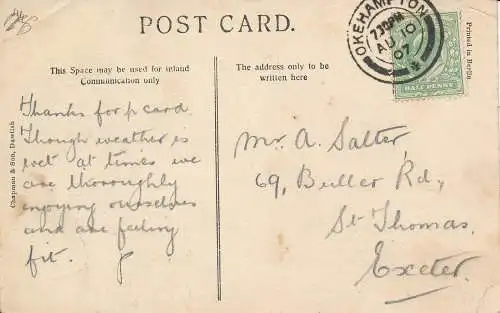 POST CARD.
This Space may be used for inland
Communication only
The address only to be
written here
Thanks for p card.
Though weather is
wet at times we
are thoroughly
enjoying ourselves
and are feeling
fit.
Mr A. Salter,
69, Buller Rd,
St Thomas.
Exeter.
OKEHAMPTON
7.30PM
AU 10
07
HALF PENNY
Printed in Berlin.
Chapman & Son, Dawlish